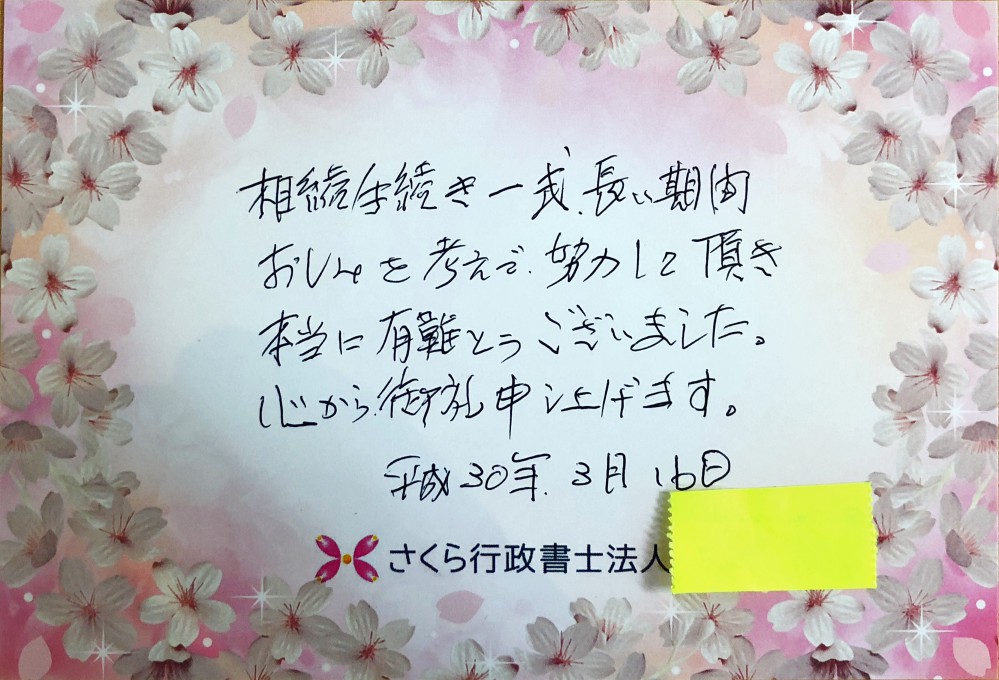 相続手続き一式、長い期間
おしみを考えて、努力して頂き
本当に有難とうございました。
心から御礼申し上げます。
平成30年3月16日
さくら行政書士法人